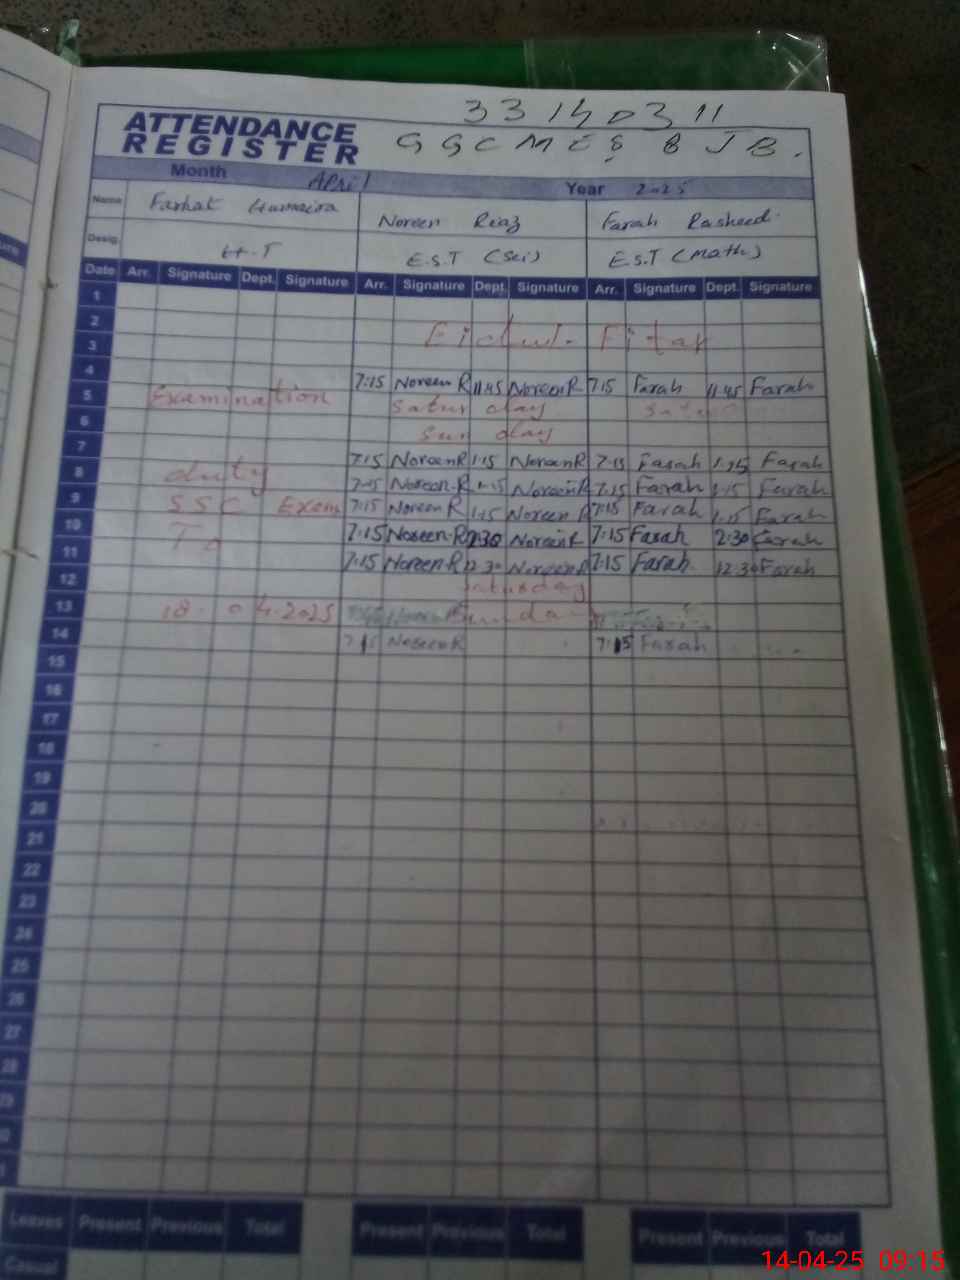 33140311
ATTENDANCE
REGISTER
GGCMES 8 JB.
Month April Year 2025
Name Farhat Humaira Noreen Riaz Farah Rasheed
Desig. H.T E.S.T (Sci) E.S.T (Math)
Date Arr. Signature Dept. Signature Arr. Signature Dept. Signature Arr. Signature Dept. Signature
1
2
Eidul. Fitar
3
4 7:15 Noreen R 11:45 Noreen R 7:15 Farah 11:45 Farah
5 Examination Saturday
6 Sunday
7 7:15 Noreen R 1:15 Noreen R 7:15 Farah 1:15 Farah
8 duty 7:15 Noreen R 1:15 Noreen R 7:15 Farah 1:15 Farah
9 SSC Exam 7:15 Noreen R 1:15 Noreen R 7:15 Farah 1:15 Farah
10 To 7:15 Noreen R 2:30 Noreen R 7:15 Farah 2:30 Farah
11 7:15 Noreen R 12:30 Noreen R 7:15 Farah 12:30 Farah
12 Saturday
13 18-04-2025 Sunday
14 7:15 Noreen R 7:15 Farah
15
16
17
18
19
20
21
22
23
24
25
26
27
28
Leaves Present Previous Total Present Previous Total Present Previous Total
Casual
14-04-25 09:15